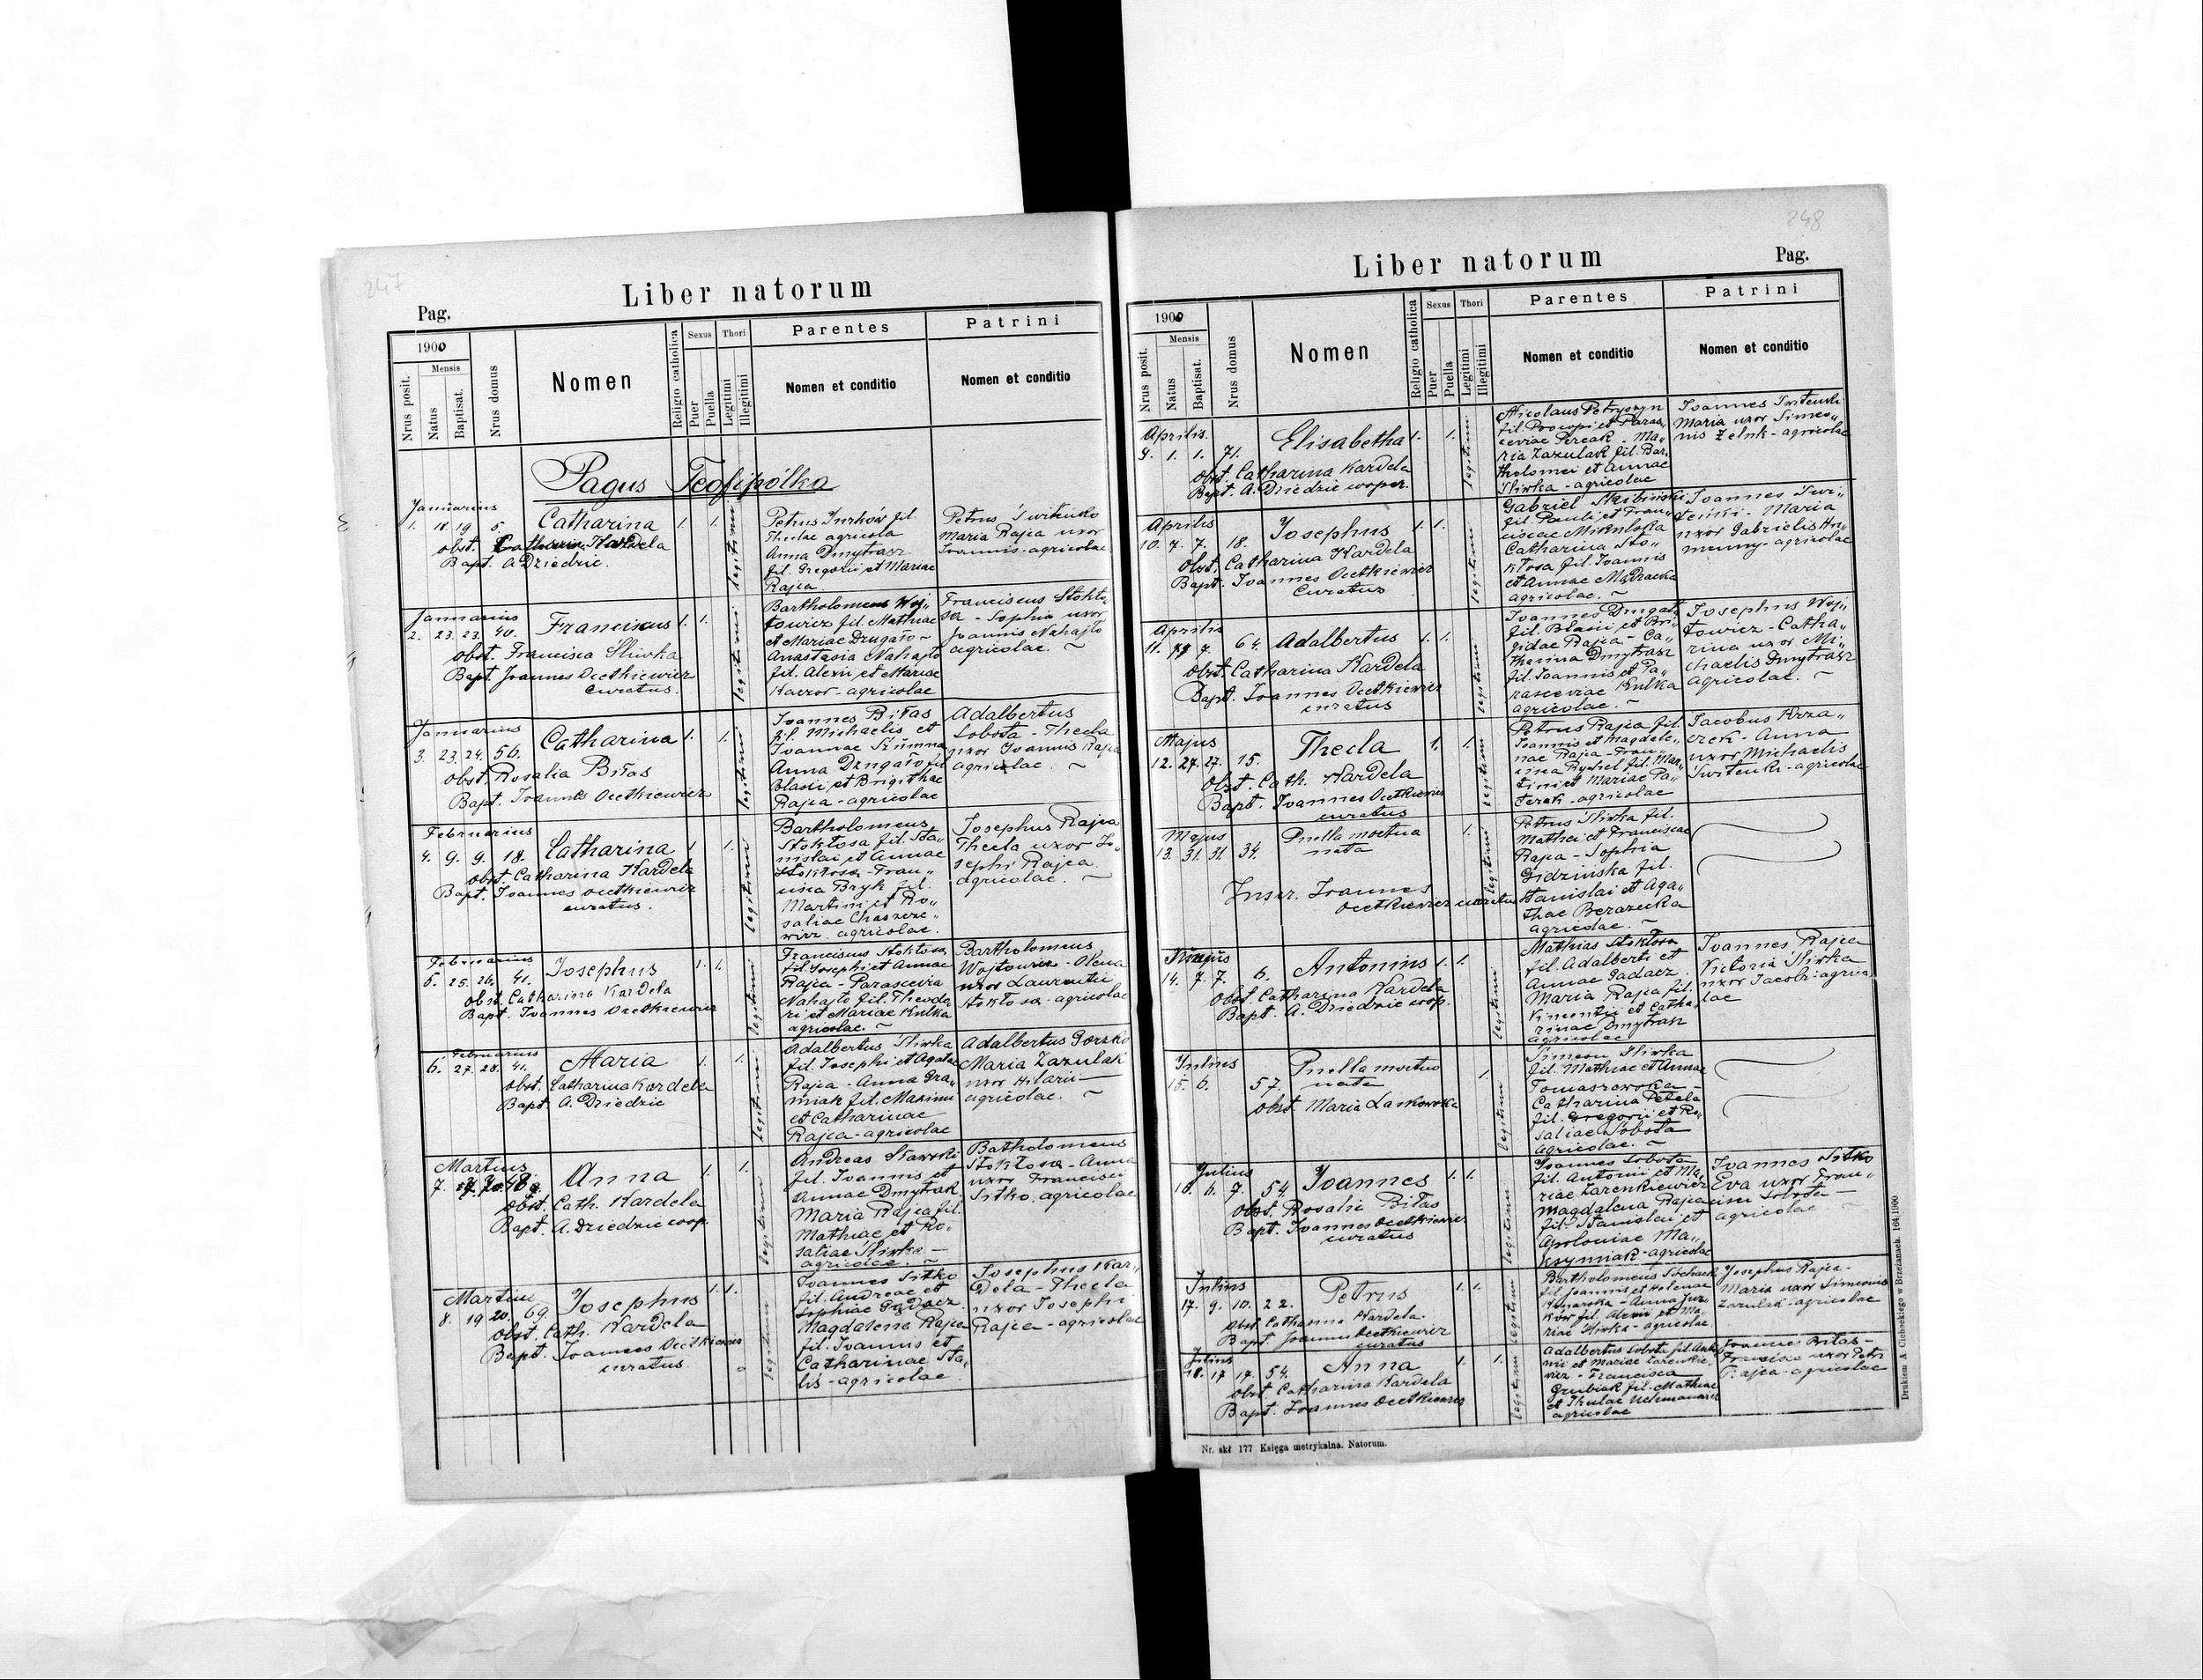 247
Liber natorum
Pag.
1900
Mensis
Nrus posit.
Natus
Baptisat.
Nrus domus
Nomen
Religio catholica
Sexus
Puer
Puella
Thori
Legitimi
Illegitimi
Parentes
Nomen et conditio
Patrini
Nomen et conditio
Pagus Teofipólka
Januarius
1. 18. 19 5. Catharina 1. 1.
obst. Catharina Kardela
Bapt. A Dziedzic.
legitimi
Petrus Jurków fil.
Theclae agricola
Anna Dmytrasz
fil. Gregorii et Mariae
Rajca
Petrus
Maria Rajca uxor
Joannis - agricolae
Januarius
2. 23. 23. 40. Franciscus 1. 1.
obst. Francisca Śliwka
Bapt. Joannes Ocetkiewicz
curatus.
legitimi
Bartholomeus Woj„
towicz fil. Mathiae
et Mariae Drugało -
Anastasia Nahajło
fil. Alexii et Mariae
agricolae
Franciscus Stokło„
sa - Sophia uxor
Joannis Nahajło
agricolae. ~
Januarius
3. 23. 24. 56. Catharina 1. 1.
obst. Rosalia Biłas
Bapt. Joannes Ocetkiewicz
legitimi
Joannes Biłas
fil. Michaelis et
Joannae
Anna Drugało fil.
Blasii et Brigithae
Rajca - agricolae
Adalbertus
Sobota - Thecla
uxor Joannis Rajca
agricolae. ~
Februarius
4. 9. 9. 18. Catharina 1 1.
obst. Catharina Kardela
Bapt. Joannes Ocetkiewicz
curatus.
legitimi
Bartholomeus
Stokłosa fil. Sta„
nislai et Annae
Stokłosa - Fran„
cisca Bryk fil.
Martini et Ro„
saliae
agricolae.
Josephus Rajca
Thecla uxor Jo„
sephi Rajca
agricolae. ~
Februarius
5. 25. 26. 41. Josephus 1. 1.
obst. Catharina Kardela
Bapt. Joannes Ocetkiewicz
legitimi
Franciscus Stokłosa
fil. Josephi et Annae
Rajca - Parascevia
Nahajło fil. Theodo
ri et Mariae Kulka
agricolae. ~
Bartholomeus
Wojtowicz - Olena
uxor Laurentii
Stokłosa - agricolae
Februarius
6. 27. 28. 41. Maria 1. 1.
obst. Catharina Kardela
Bapt. A. Dziedzic
legitimi
Adalbertus Śliwka
fil. Josephi et Agatae
Rajca - Anna Gra„
miak fil. Maximi
et Catharinae
Rajca - agricolae
Adalbertus Gorzko
Maria Zazulak
uxor Hilarii -
agricolae. ~
Martius
7. Anna 1. 1.
obst. Cath. Kardela
Bapt. A. Dziedzic coop.
legitimi
Andreas Sławski
fil. Joannis et
Annae Dmytrak
Maria Rajca fil.
Mathiae et Ro„
saliae Śliwka -
agricolae. ~
Batholomeus
Stokłosa - Anna
uxor Francisci
Sitko. agricolae
Martius
8. 19 20. 69. Josephus 1. 1.
obst. Cath. Kardela
Bapt. Joannes Ocetkiewicz
curatus.
legitimi
Joannes Sitko
fil. Andreae et
Sophiae Gadacz
Magdalena Rajca
fil. Joannis et
Catharinae Sta„
liś - agricolae
Josephus Kar„
dela - Thecla
uxor Josephi
Rajca - agricolae
248
Liber natorum
Pag.
1900
Mensis
Nrus posit.
Natus
Baptisat.
Nrus domus
Nomen
Religio catholica
Sexus
Puer
Puella
Thori
Legitimi
Illegitimi
Parentes
Nomen et conditio
Patrini
Nomen et conditio
Aprilis.
9. 1. 1. 71. Elisabetha 1. 1.
obst. Catharina Kardela
Bapt. A. Dziedzic cooper.
legitimi
Nicolaus Petryszyn
fil. Procopi et Paras„
ceviae Percak - Ma„
ria Zazulak fil. Bar„
tholomei et Annae
Śliwka - agricolae
Joannes
Maria uxor Simeo„
nis - agricolae
Aprilis
10. 7. 7. 18. Josephus 1. 1.
Obst. Catharina Kardela
Bapt. Joannes Ocetkiewicz
Curatus
legitimi
Gabriel Skibiński
fil. Pauli et Fran„
ciscae Mikulska
Catharina Sto„
kłosa fil. Joannis
et Annae
agricolae. ~
Joannes Świ„
teńki - Maria
uxor Gabrielis
agricolae
Aprilis
11. 7. 64. Adalbertus 1. 1.
obst. Catharina Kardela
Bapt. Joannes Ocetkiewicz
curatus
legitimi
Joannes Drugało
fil. Blasii et Bri„
gidae Rajca - Ca„
tharina Dmytrasz
fil. Joannis et Pa„
rasceviae Kulka
agricolae. ~
Josephus Woj„
towicz - Catha„
rina uxor Mi„
chaelis Dmytrasz
agricolae. ~
Majus
12. 27. 27. 15. Thecla 1. 1.
Obst. Cath. Kardela
Bapt. Joannes Ocetkiewicz
curatus
legitimi
Petrus Rajca fil.
Joannis et Magdale„
nae Rajca - Fran„
cisca Rychel fil. Mar„
tini et Mariae Pa„
agricolae
Jacobus Krza„
czek - Anna
uxor Michaelis
agricolae
Majus
13. 31. 31. 34. Puella mortua 1.
nata
Inscr. Joannes
Ocetkiewicz curatus
legitimi
Petrus Śliwka fil.
Matthei et Franciscae
Rajca - Sophia
Gidzińska fil.
Stanislai et Aga„
thae
agricolae. ~
14. 7. 7. 6. Antonius 1. 1.
Obst. Catharina Kardela
Bapt. A. Dziedzic coop.
legitimi
Mathias Stokłosa
fil. Adalberti et
Annae Gadacz
Maria Rajca fil.
Vincentii et Catha„
rinae Dmytrasz
agricolae
Joannes Rajca
Victoria Śliwka
uxor Jacobi agrico
lae
Julius
15. 6. 57. Puella mortuo 1.
nata
obst. Maria Laskowska
legitimi
Simeon Śliwka
fil. Mathiae et Annae
Tomaszewska -
Catharina Petela
fil. Gregorii et Ro„
saliae Sobota
agricolae. ~
Julius
16. 6. 7. 54. Joannes 1. 1.
obst. Rosalii Biłas
Bapt. Joannes Ocetkiewicz
curatus
legitimi
Joannes Sobota
fil. Antonii et Ma„
riae Zarenkiewicz
Magdalena Rajca
fil. Stanislai et
Apoloniae Ma„
ksymiak - agricolae
Joannes Sitko
Eva uxor Fran„
cisci Sobota -
agricolae
Julius
17. 9. 10. 22. Petrus 1. 1.
Obst. Catharina Kardela.
Bapt. Joannes Ocetkiewicz
curatus
legitimi
Bartholomeus
fil. Joannis et Helenae
Anna Jur„
ków fil. Alexii et Ma„
riae Śliwka - agricolae.
Josephus Rajca -
Maria uxor Simeonis
Zazulak - agricolae
Julius
18. 17 17. 54. Anna 1. 1.
obst. Catharina Kardela
Bapt. Joannes Ocetkiewicz
legitimi
Adalbertus Sobota fil. Anto
nii et Mariae
Francisca
Grubiak fil. Mathiae
et Theclae
agricolae
Joannes Biłas -
Francisca uxor Petri
Rajca - agricolae
Nr. skł 177 Księga metrykalna. Natorum.
Drukiem A Cichockiego w Brzeżanach. 164 1900